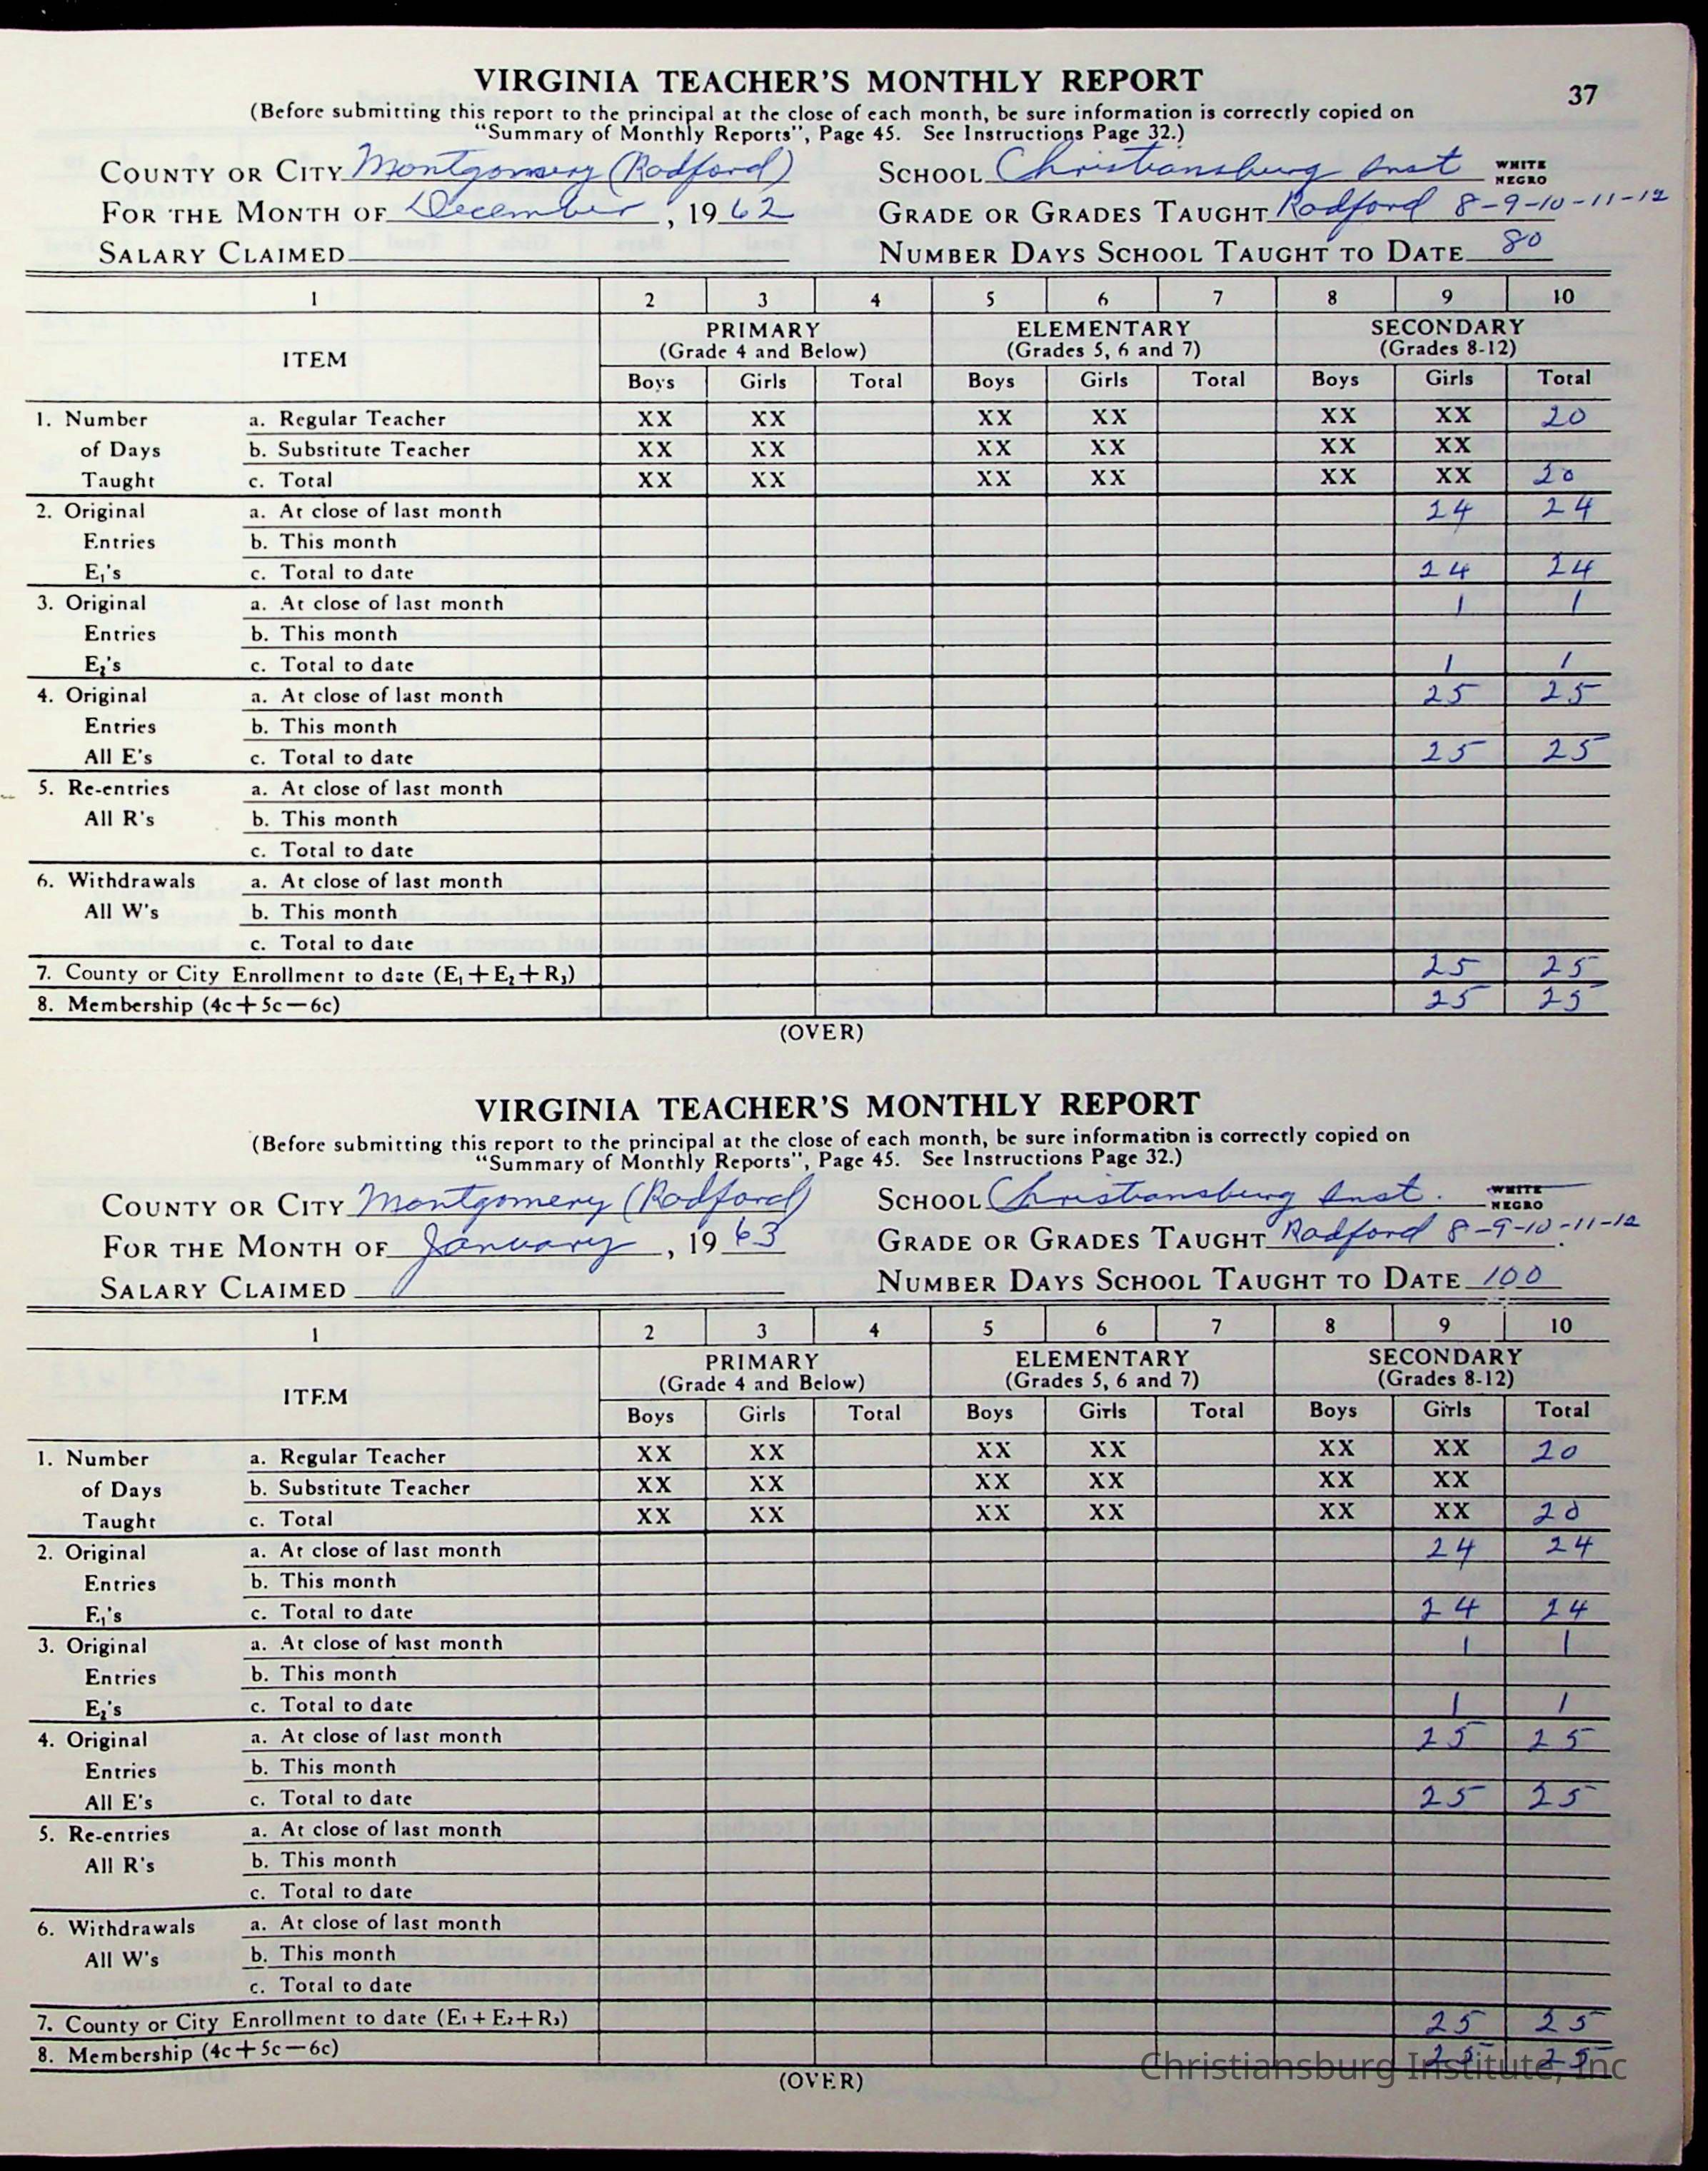 VIRGINIA TEACHER'S MONTHLY REPORT 37
(Before submitting this report to the principal at the close of each month, be sure information is correctly copied on
"Summary of Monthly Reports", Page 45. See Instructions Page 32.)
COUNTY OR CITY Montgomery (Radford) SCHOOL Christiansburg Inst WHITE NEGRO
FOR THE MONTH OF December, 1962 GRADE OR GRADES TAUGHT Radford 8-9-10-11-12
SALARY CLAIMED NUMBER DAYS SCHOOL TAUGHT TO DATE 80
1 2 3 4 5 6 7 8 9 10
PRIMARY ELEMENTARY SECONDARY
ITEM (Grade 4 and Below) (Grades 5, 6 and 7) (Grades 8-12)
Boys Girls Total Boys Girls Total Boys Girls Total
1. Number a. Regular Teacher XX XX XX XX XX XX 20
of Days b. Substitute Teacher XX XX XX XX XX XX
Taught c. Total XX XX XX XX XX XX 20
2. Original a. At close of last month 24 24
Entries b. This month
E1's c. Total to date 24 24
3. Original a. At close of last month 1 1
Entries b. This month
E2's c. Total to date 1 1
4. Original a. At close of last month 25 25
Entries b. This month
All E's c. Total to date 25 25
5. Re-entries a. At close of last month
All R's b. This month
c. Total to date
6. Withdrawals a. At close of last month
All W's b. This month
c. Total to date
7. County or City Enrollment to date (E1+E2+R3) 25 25
8. Membership (4c+5c−6c) 25 25
(OVER)
VIRGINIA TEACHER'S MONTHLY REPORT
(Before submitting this report to the principal at the close of each month, be sure information is correctly copied on
"Summary of Monthly Reports", Page 45. See Instructions Page 32.)
COUNTY OR CITY Montgomery (Radford) SCHOOL Christiansburg Inst. WHITE NEGRO
FOR THE MONTH OF January, 1963 GRADE OR GRADES TAUGHT Radford 8-9-10-11-12
SALARY CLAIMED NUMBER DAYS SCHOOL TAUGHT TO DATE 100
1 2 3 4 5 6 7 8 9 10
PRIMARY ELEMENTARY SECONDARY
ITEM (Grade 4 and Below) (Grades 5, 6 and 7) (Grades 8-12)
Boys Girls Total Boys Girls Total Boys Girls Total
1. Number a. Regular Teacher XX XX XX XX XX XX 20
of Days b. Substitute Teacher XX XX XX XX XX XX
Taught c. Total XX XX XX XX XX XX 20
2. Original a. At close of last month 24 24
Entries b. This month
E1's c. Total to date 24 24
3. Original a. At close of last month 1 1
Entries b. This month
E2's c. Total to date 1 1
4. Original a. At close of last month 25 25
Entries b. This month
All E's c. Total to date 25 25
5. Re-entries a. At close of last month
All R's b. This month
c. Total to date
6. Withdrawals a. At close of last month
All W's b. This month
c. Total to date
7. County or City Enrollment to date (E1+E2+R3) 25 25
8. Membership (4c+5c−6c) 25 25
Christiansburg Institute, Inc
(OVER)